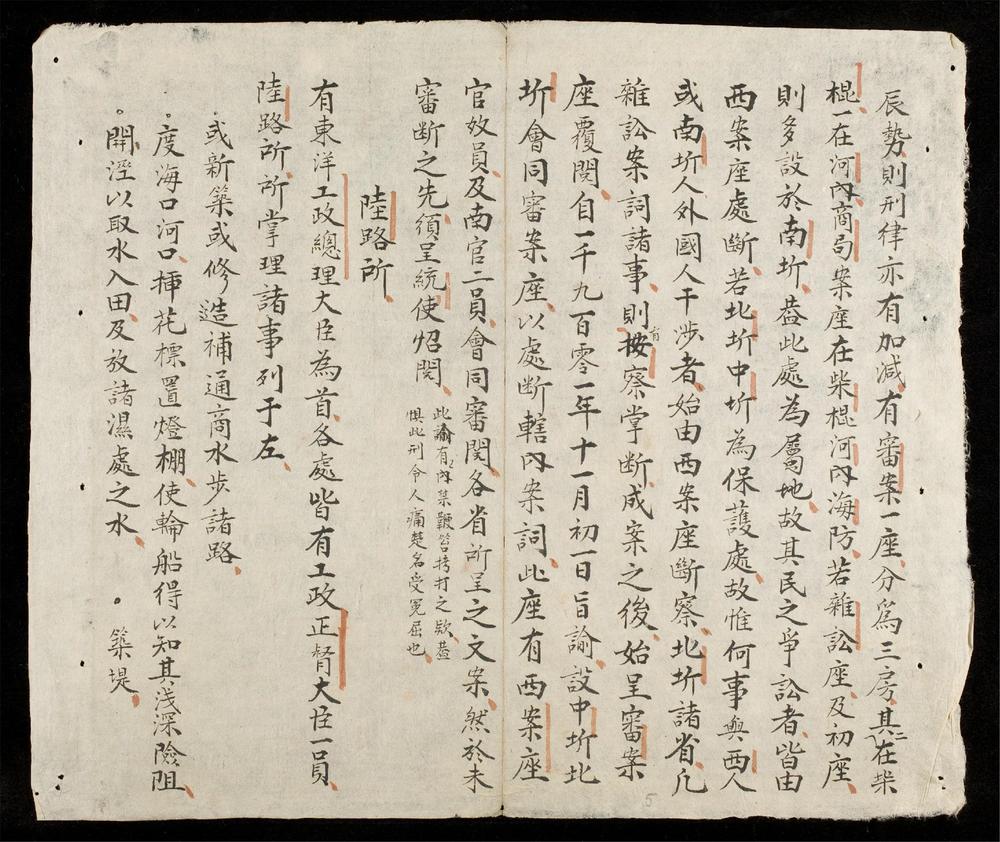 辰勢則刑律亦有加減有審案一座分為三房其二在柴
棍一在河內商局案座在柴棍河內海防若雜訟座及初座
則多設於南圻蓋此處為屬地故其民之爭訟者皆由
西案座處斷若北圻中圻為保護處故惟何事與西人
或南圻人外國人干涉者始由西案座斷察北圻諸省凡
雜訟案詞諸事則按察掌斷成案之後始呈審案
座覆閱自一千九百零一年十一月初一日旨諭設中圻北
圻會同審案座以處斷轄內案詞此座有西案座
官父員及南官二員會同審閱各省所呈之文案然於未
審斷之先須呈統使炤閱
此諭有內禁鞭笞拷打之欵蓋
惧此刑令人痛楚名受冤屈也
陸路所
有東洋工政總理大臣為首各處皆有工政正督大臣一員
陸路所所掌理諸事列于左
或新築或修造補通商水步諸路
度海口河口揷花標置燈棚使輪船得以知其浅深險阻
開溼以取水入田及放諸濕處之水 築堤